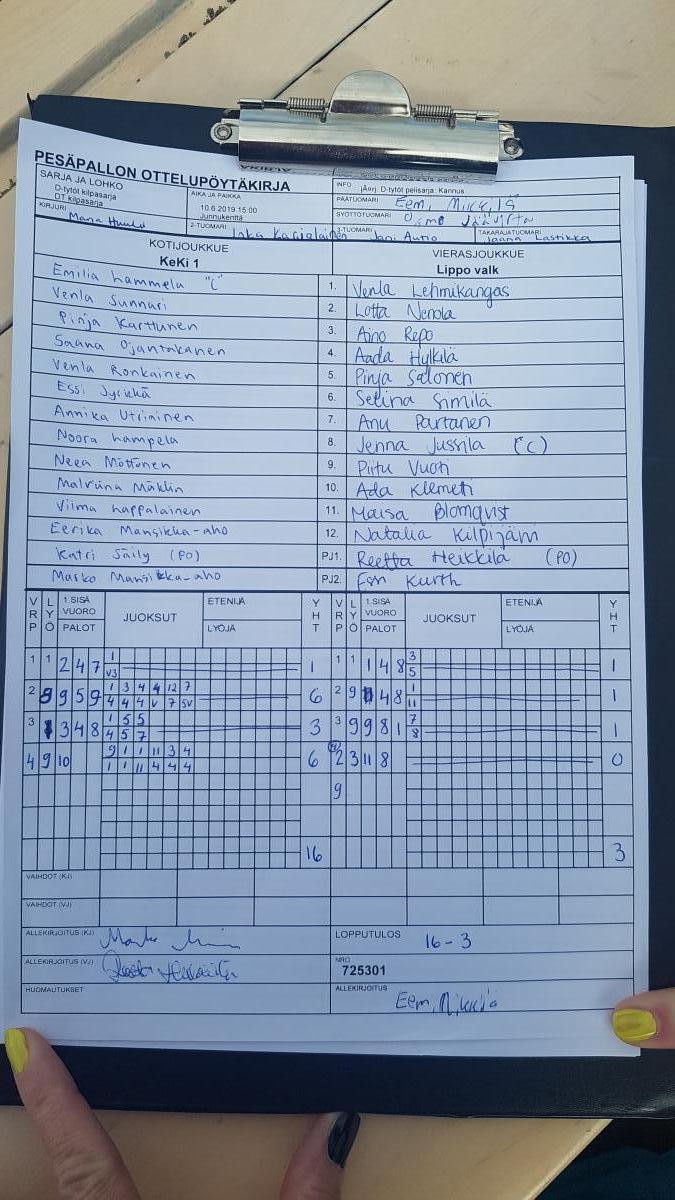 PESÄPALLON OTTELUPÖYTÄKIRJA
SARJA JA LOHKO
D-tytöt kilpasarja
DT kilpasarja
AIKA JA PAIKKA
10.6.2019 15:00
Junnukenttä
INFO
jÄorj. D-tytöt pelisarja: Kannus
PÄÄTUOMARI Eem,
SYÖTTÖTUOMARI Osmo
KIRJURI
2-TUOMARI Inka Karjalainen
3-TUOMARI Jani Autio
TAKARAJATUOMARI Jaana Lastikka
KOTIJOUKKUE
KeKi 1
VIERASJOUKKUE
Lippo valk
Emilia hammela "C" 1. Venla Lehmikangas
Venla Sunnari 2. Lotta Nenola
Pinja Karttunen 3. Aino Repo
Saana Ojantakanen 4. Aada Hylkilä
Venla Ronkainen 5. Pinja Salonen
Essi Jyrkkä 6. Selina
Annika Utriainen 7. Anu Partanen
Noora hampela 8. Jenna Jussila (C)
Neea Möttönen 9. Piitu Vuoti
Malviina Mäklin 10. Ada Klemeti
Vilma happalainen 11. Maisa Blomqvist
Eerika Mansikka-aho 12. Natalia Kilpijärvi
Katri Säily (PO) PJ1. Reetta Heikkilä (PO)
Marko Mansikka-aho PJ2. Kurth
VRP LYÖ 1.SISÄ VUORO PALOT JUOKSUT ETENIJÄ LYÖJÄ YHT VRP LYÖ 1.SISÄ VUORO PALOT JUOKSUT ETENIJÄ LYÖJÄ YHT
1 1 2 4 7 1 1 1 1 4 8 3 1
V3 5
2 9 5 9 1 3 4 4 12 7 6 2 9 4 8 1 1
4 4 4 V 7 SV 11
3 3 4 8 1 5 5 3 3 9 9 8 1 7 1
4 5 7 8
4 9 10 9 1 1 11 3 4 6 2 3 11 8 0
1 1 11 4 4 4
9
16 3
VAIHDOT (KJ)
VAIHDOT (VJ)
ALLEKIRJOITUS (KJ)
LOPPUTULOS 16-3
ALLEKIRJOITUS (VJ)
NRO
725301
HUOMAUTUKSET
ALLEKIRJOITUS
Eem,